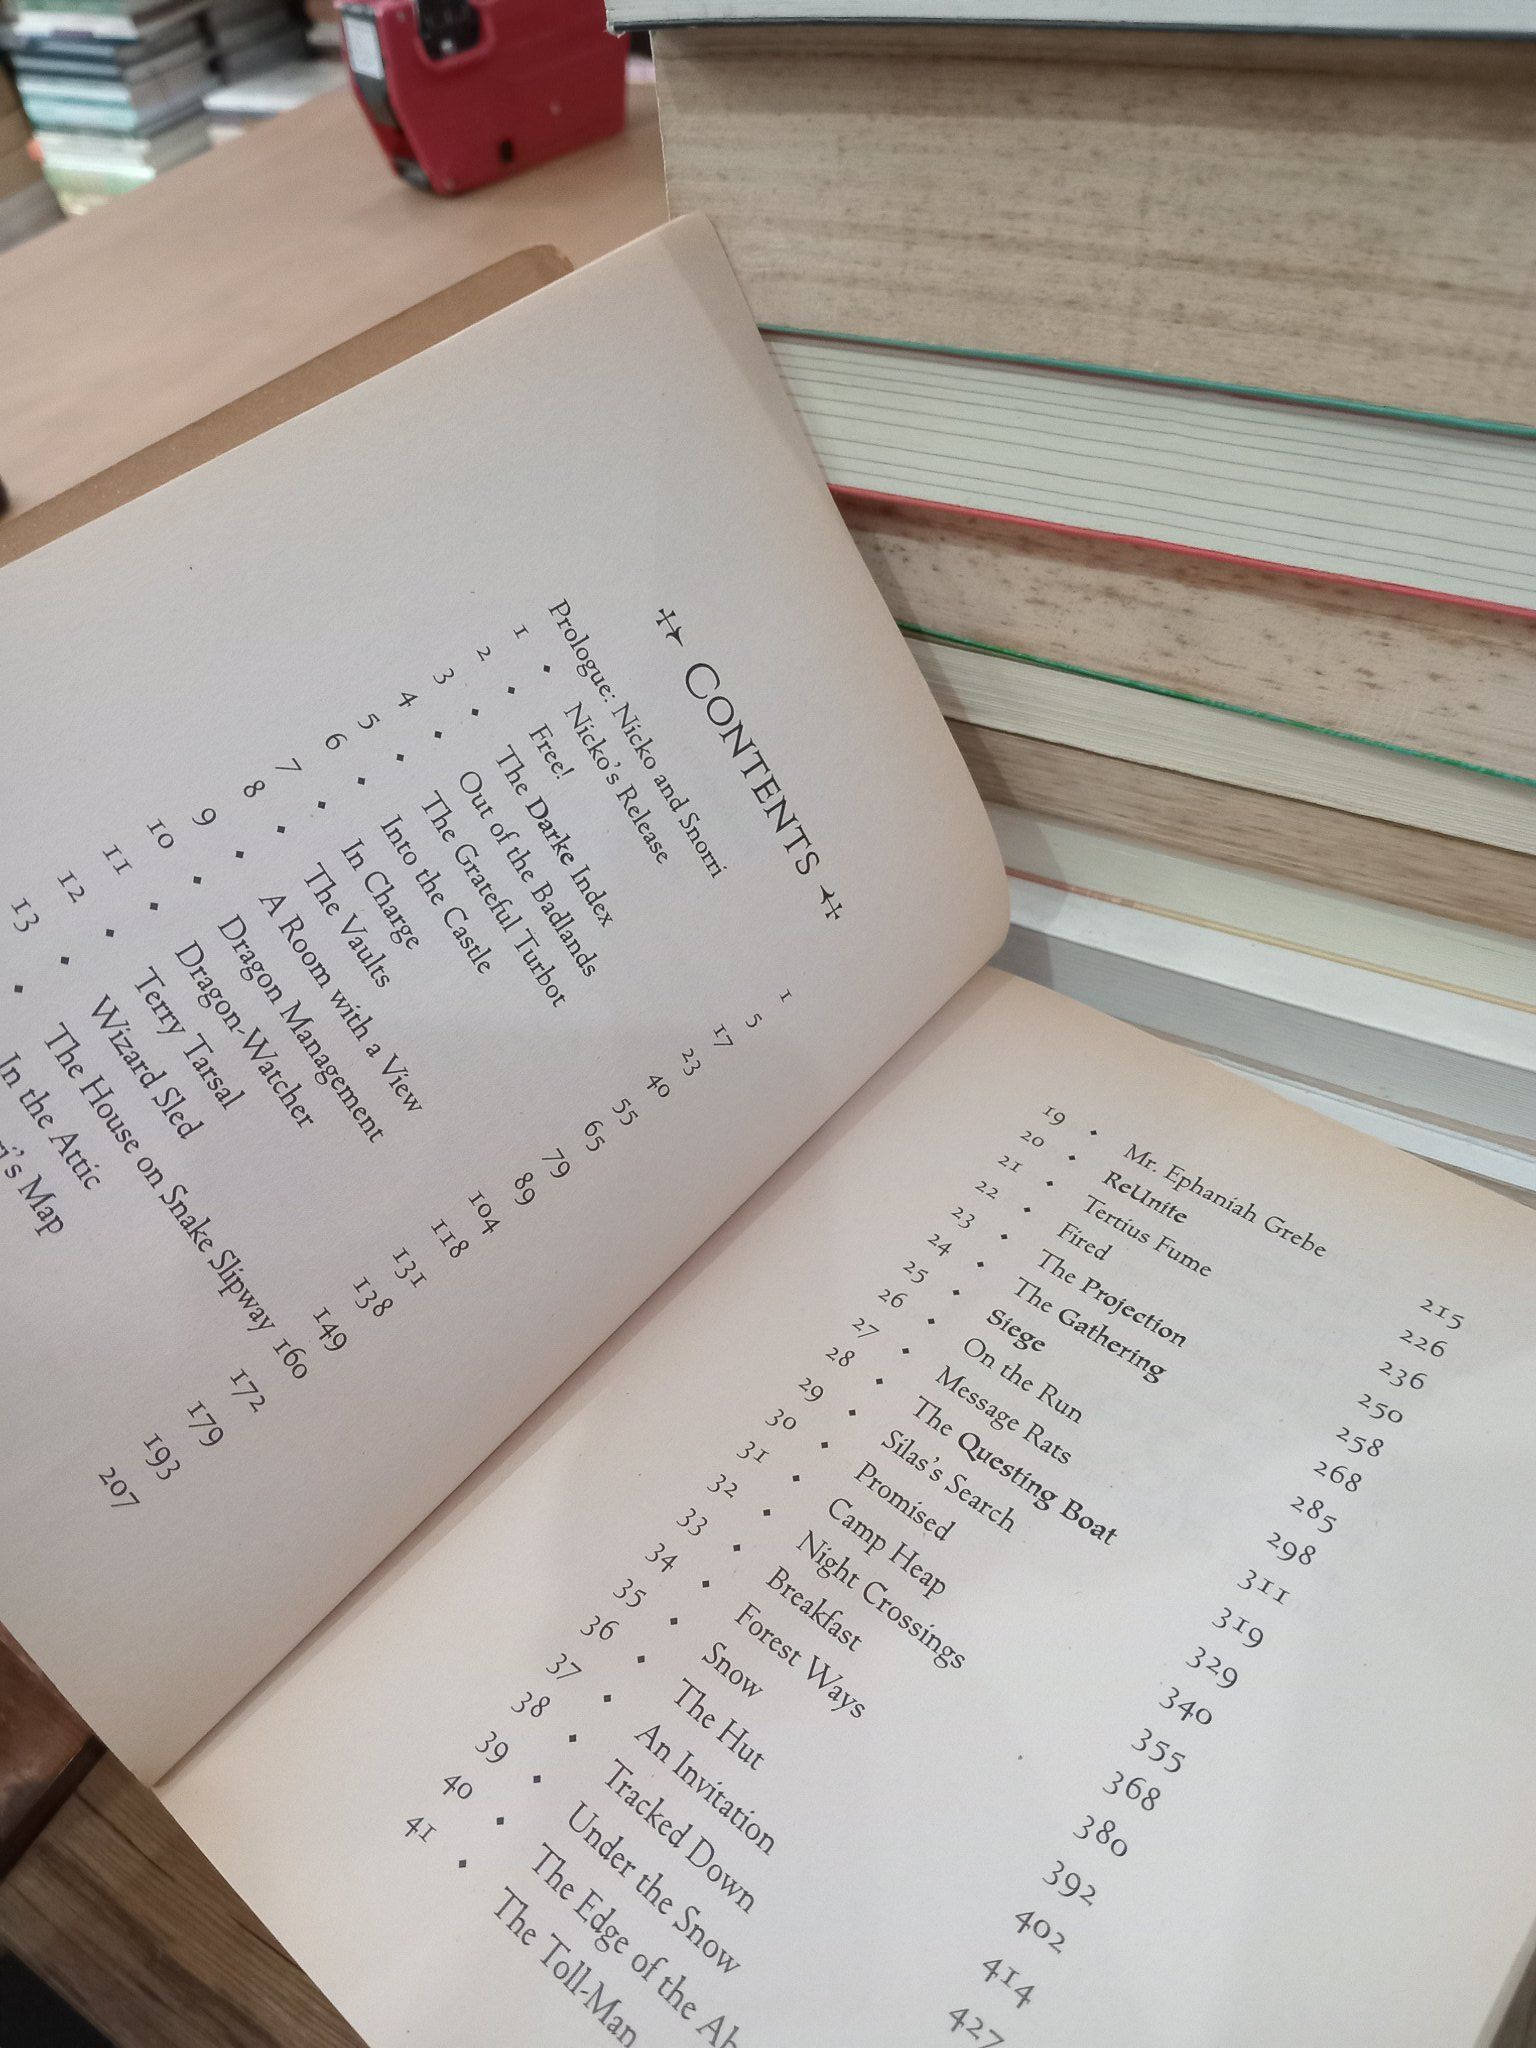 CONTENTS
Prologue: Nicko and Snorri 1
1 ◆ Nicko's Release 5
2 ◆ Free! 17
3 ◆ The Darke Index 23
4 ◆ Out of the Badlands 40
5 ◆ The Grateful Turbot 55
6 ◆ Into the Castle 65
7 ◆ In Charge 79
8 ◆ The Vaults 89
9 ◆ A Room with a View 104
10 ◆ Dragon Management 118
11 ◆ Dragon-Watcher 131
12 ◆ Terry Tarsal 138
13 ◆ Wizard Sled 149
◆ The House on Snake Slipway 160
In the Attic 172
Map 179
193
207
19 ◆ Mr. Ephaniah Grebe 215
20 ◆ ReUnite 226
21 ◆ Tertius Fume 236
22 ◆ Fired 250
23 ◆ The Projection 258
24 ◆ The Gathering 268
25 ◆ Siege 285
26 ◆ On the Run 298
27 ◆ Message Rats 311
28 ◆ The Questing Boat 319
29 ◆ Silas's Search 329
30 ◆ Promised 340
31 ◆ Camp Heap 355
32 ◆ Night Crossings 368
33 ◆ Breakfast 380
34 ◆ Forest Ways 392
35 ◆ Snow 402
36 ◆ The Hut 414
37 ◆ An Invitation 427
38 ◆ Tracked Down
39 ◆ Under the Snow
40 ◆ The Edge of the
41 ◆ The Toll-Man